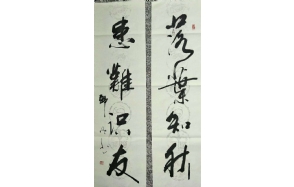 落葉知秋
患難識友